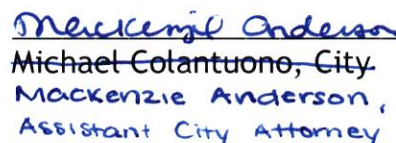 Mackenzie Anderson
Michael Colantuono, City
Mackenzie Anderson,
Assistant City Attorney